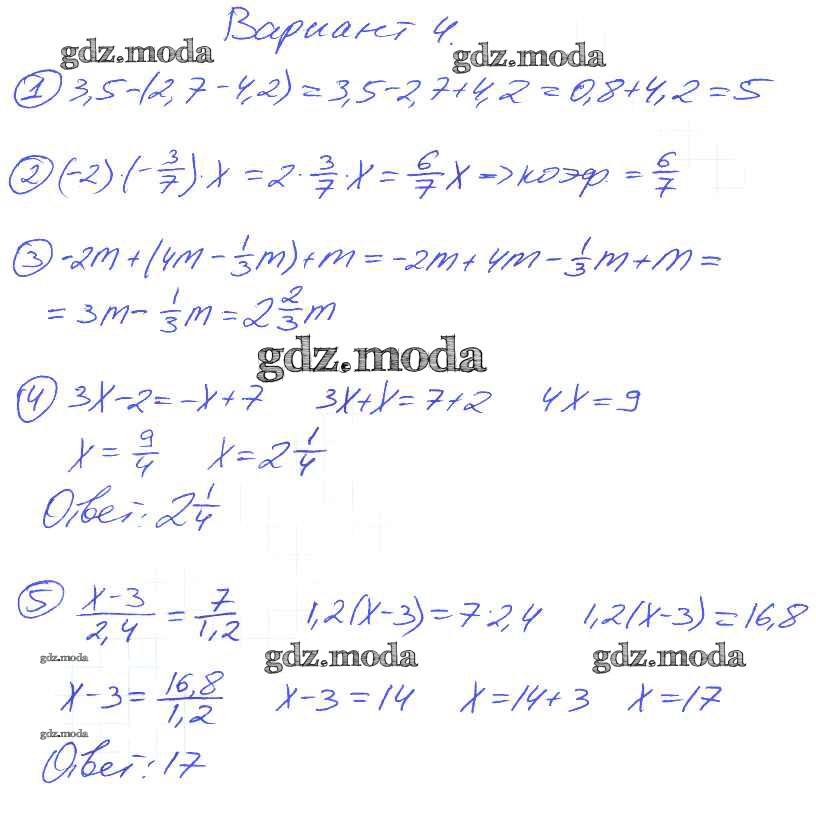 Вариант 4.
gdz.moda gdz.moda
① 3,5-(2,7-4,2)=3,5-2,7+4,2=0,8+4,2=5
② (-2)·(-3/7)·x=2·3/7·x=6/7x=>коэф.=6/7
③ -2m+(4m-1/3m)+m=-2m+4m-1/3m+m=
=3m-1/3m=2 2/3m
gdz.moda
④ 3x-2=-x+7 3x+x=7+2 4x=9
x=9/4 x=2 1/4
Ответ: 2 1/4
⑤ x-3/2,4=7/1,2 1,2(x-3)=7·2,4 1,2(x-3)=16,8
gdz.moda gdz.moda gdz.moda
x-3=16,8/1,2 x-3=14 x=14+3 x=17
gdz.moda
Ответ: 17